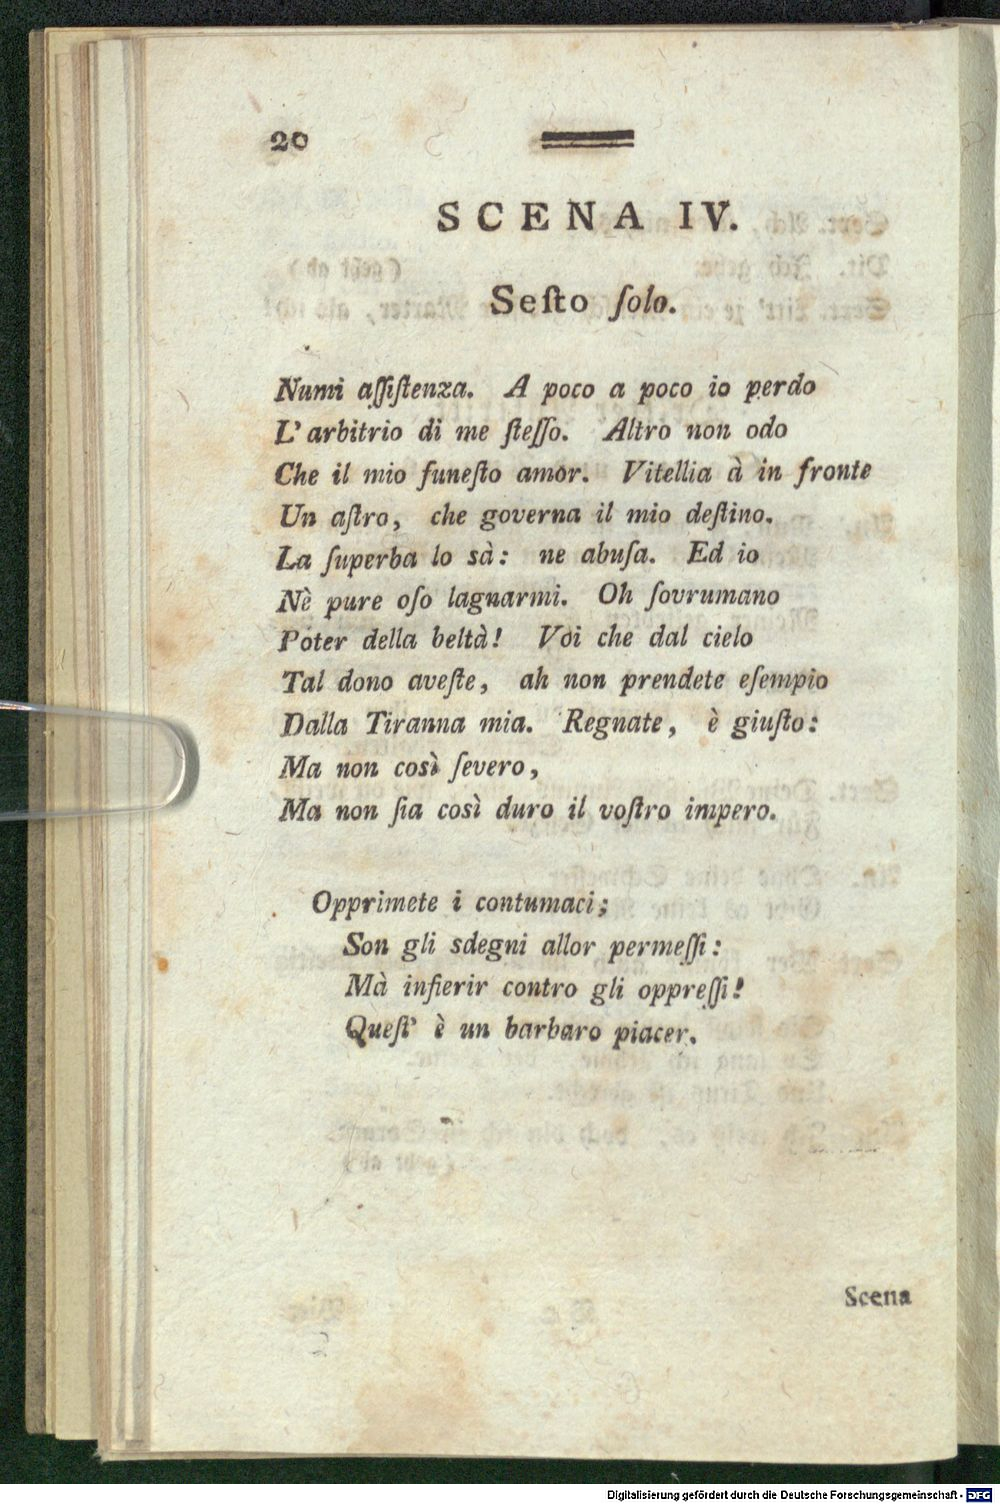 20
SCENA IV.
Seſto ſolo.
Numi aſſiſtenza. A poco a poco io perdo
L' arbitrio di me ſteſſo. Altro non odo
Che il mio funeſto amor. Vitellia à in fronte
Un aſtro, che governa il mio deſtino.
La ſuperba lo sà: ne abuſa. Ed io
Nè pure oſo lagnarmi. Oh ſovrumano
Poter della beltà! Voi che dal cielo
Tal dono aveſte, ah non prendete eſempio
Dalla Tiranna mia. Regnate, è giuſto:
Ma non così ſevero,
Ma non ſia così duro il voſtro impero.
Opprimete i contumaci;
Son gli sdegni allor permeſſi:
Mà infierir contro gli oppreſſi!
Queſt' è un barbaro piacer.
Scena
Digitalisierung gefördert durch die Deutsche Forschungsgemeinschaft - DFG